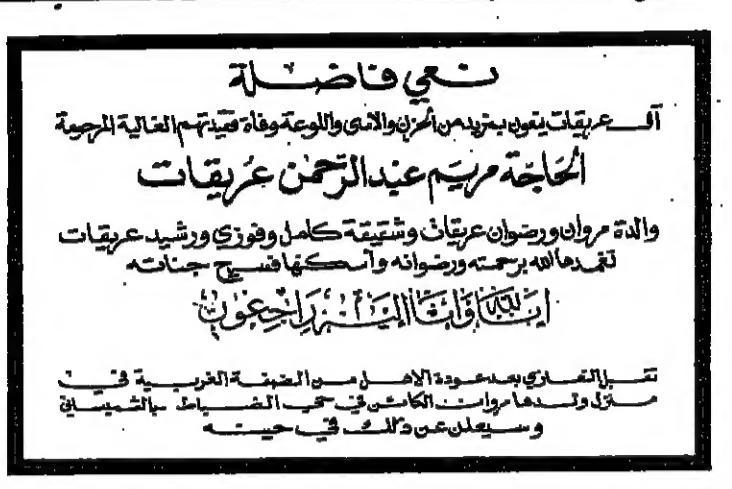 نعي فاضلة
آل عريقات ينعون بمزيد من الحزن والاسى واللوعة وفاة فقيدتهم الغالية المرحومة
الحاجة مريم عبد الرحمن عريقات
والدة مروان ورضوان عريقات وشقيقة كامل وفوزي ورشيد عريقات
تغمدها الله برحمته ورضوانه وأسكنها فسيح جناته
إنا لله وإنا إليه راجعون
تقبل التعازي بعد عودة الاهل من الضفة الغربية في
منزل ولدها مروان الكائن في حي الضباط بالشميساني
وسيعلن عن ذلك في حينه